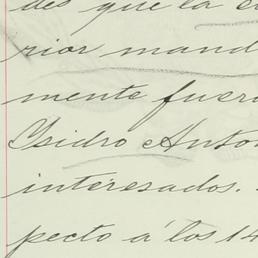 des que la
rior mand
mente fuer
Isidro Anton
interesados.
pecto a los 14